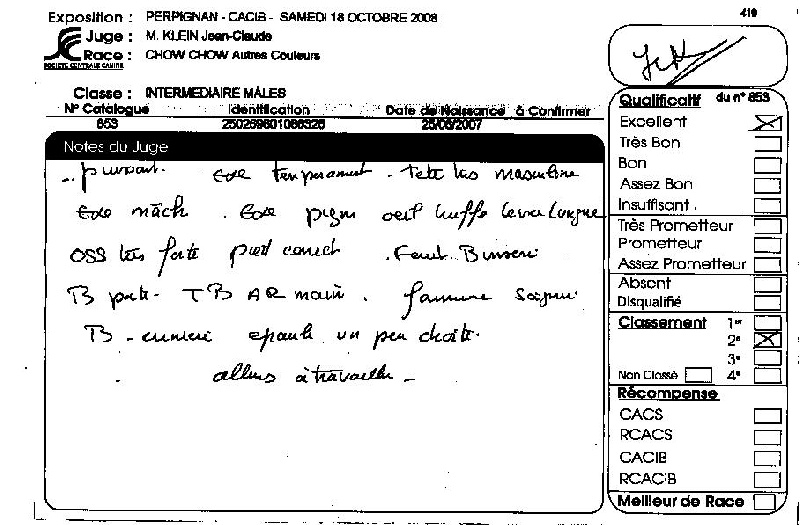 Exposition : PERPIGNAN - CACIB - SAMEDI 18 OCTOBRE 2008
419
Juge : M. KLEIN Jean-Claude
Race : CHOW CHOW Autres Couleurs
SOCIETE CENTRALE CANINE
Classe : INTERMEDIAIRE MALES
N° Catalogue Identification Date de Naissance à Confirmer
853 250269801086326 25/06/2007
Notes du Juge
puissant. Exe tempérament. Tête très masculine
Exe mâch. Exe pigm oeil truffe lèvres langue
OSS très forte pied correct.
B port. TB AR main. fourrure
B. épaule un peu droite.
allures à travailler -
Qualificatif du n° 853
Excellent
Très Bon
Bon
Assez Bon
Insuffisant.
Très Prometteur
Prometteur
Assez Prometteur
Absent
Disqualifié
Classement 1er
2e
3e
Non Classé 4e
Récompense
CACS
RCACS
CACIB
RCACIB
Meilleur de Race